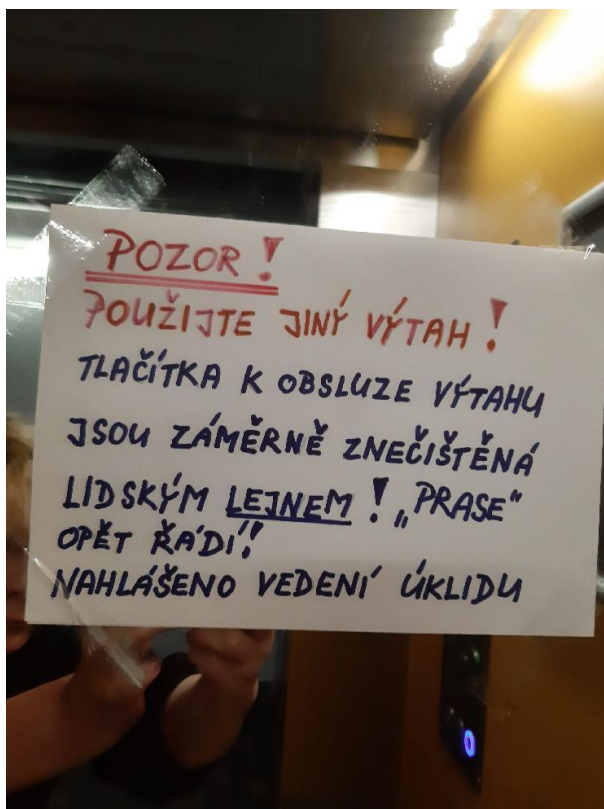 POZOR !
POUŽIJTE JINÝ VÝTAH !
TLAČÍTKA K OBSLUZE VÝTAHU
JSOU ZÁMĚRNĚ ZNEČIŠTĚNÁ
LIDSKÝM LEJNEM ! „PRASE“
OPĚT ŘÁDÍ!
NAHLÁŠENO VEDENÍ ÚKLIDU
0